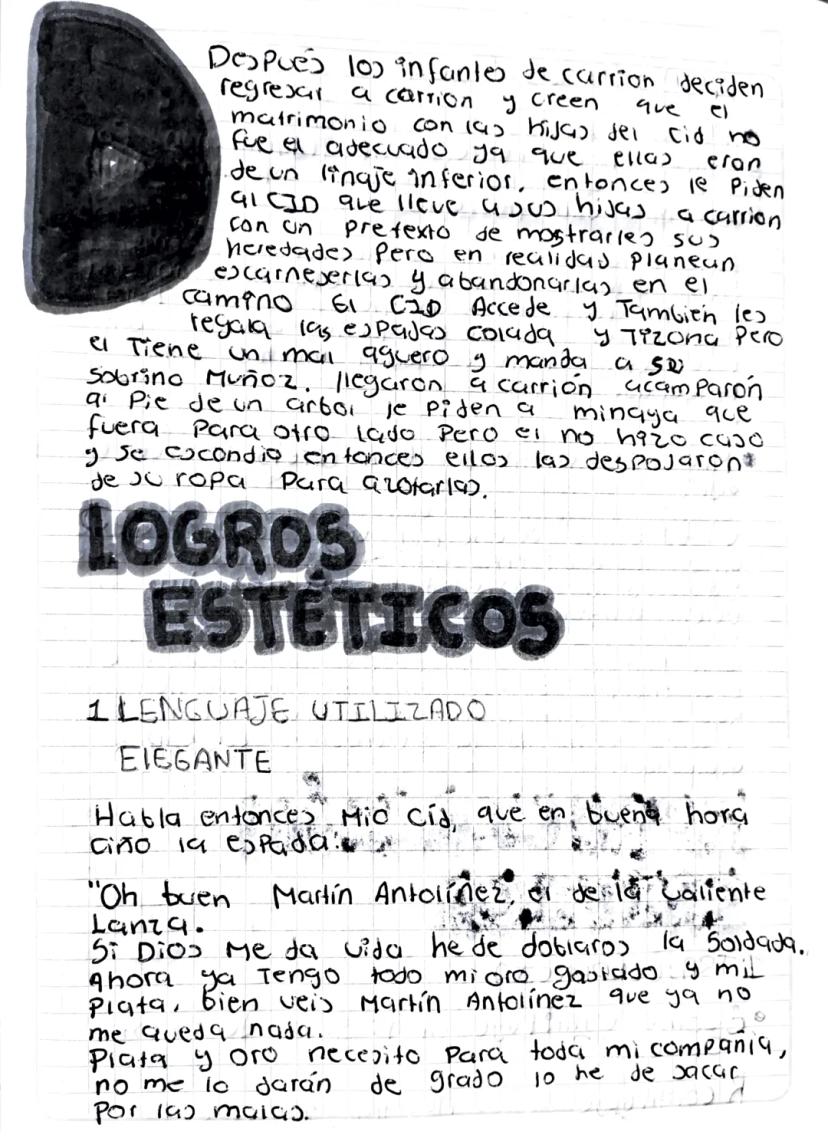 Después los infantes de carrion deciden
regresar a carrion y creen que el
matrimonio con las hijas del Cid no
fue el adecuado ya que ellas eran
de un linaje inferior, entonces le Piden
al CID que lleve a sus hijas a carrion
con un pretexto de mostrarles sus
heredades Pero en realidad Planean
escarneserlas y abandonarlas en el
camino El CID Accede y También les
regala las espadas colada y Tizona Pero
el Tiene un mal aguero y manda a su
Sobrino Muñoz, llegaron a carrión acamparon
al Pie de un arbol le Piden a minaya que
fuera Para otro lado Pero el no hizo caso
y se escondio entonces ellos las despojaron
de su ropa Para azotarlas.
LOGROS
ESTÉTICOS
1 LENGUAJE UTILIZADO
ElEGANTE
Habla entonces Mio Cid, que en buena hora
ciño la espada:
"Oh buen Martín Antolínez, el de la valiente
Lanza.
Si Dios Me da vida he de doblaros la Soldada.
Ahora ya Tengo todo mi oro gastado y mil
Plata, bien veis Martín Antolínez que ya no
me queda nada.
Plata y oro necesito Para toda mi compañia,
no me lo darán de grado lo he de sacar
Por las malas.